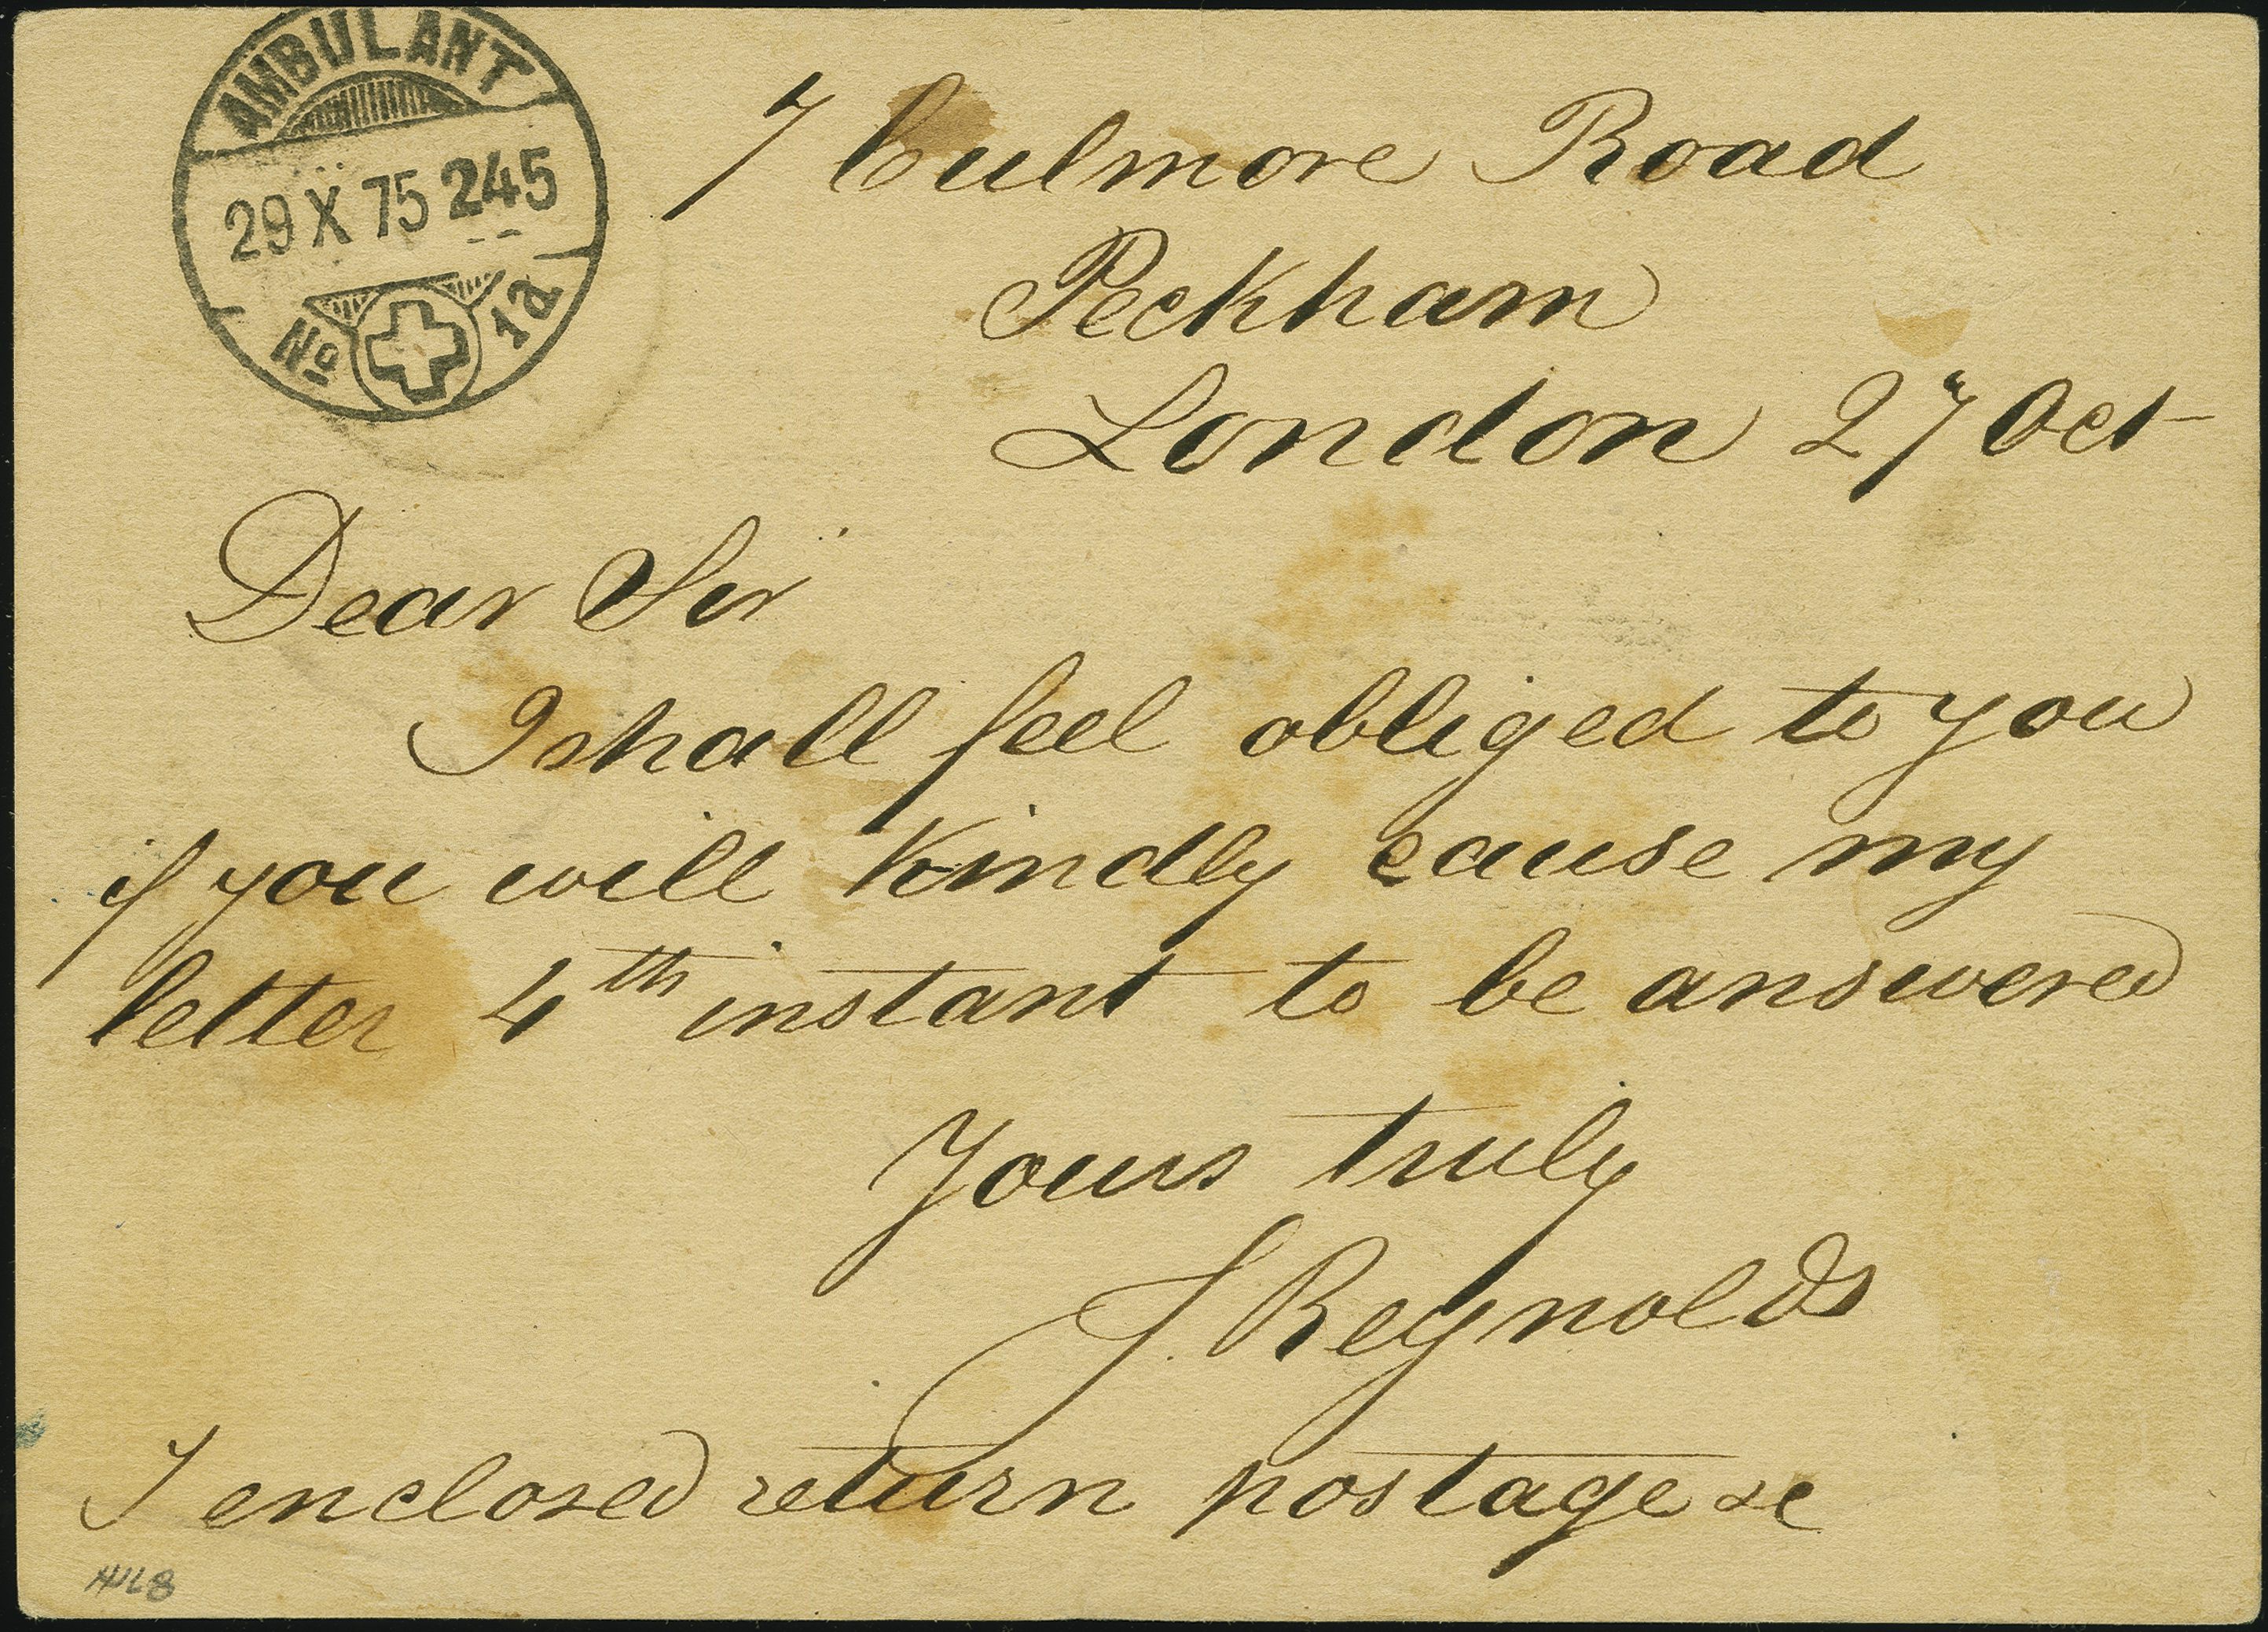 AMBULANT
29 X 75 245
No 1a
7 Culmore Road
Peckham
London 27 Oct
Dear Sir
I shall feel obliged to you
if you will kindly cause my
letter 4th instant to be answered
Yours truly
J. Reynolds
I enclosed return postage &c